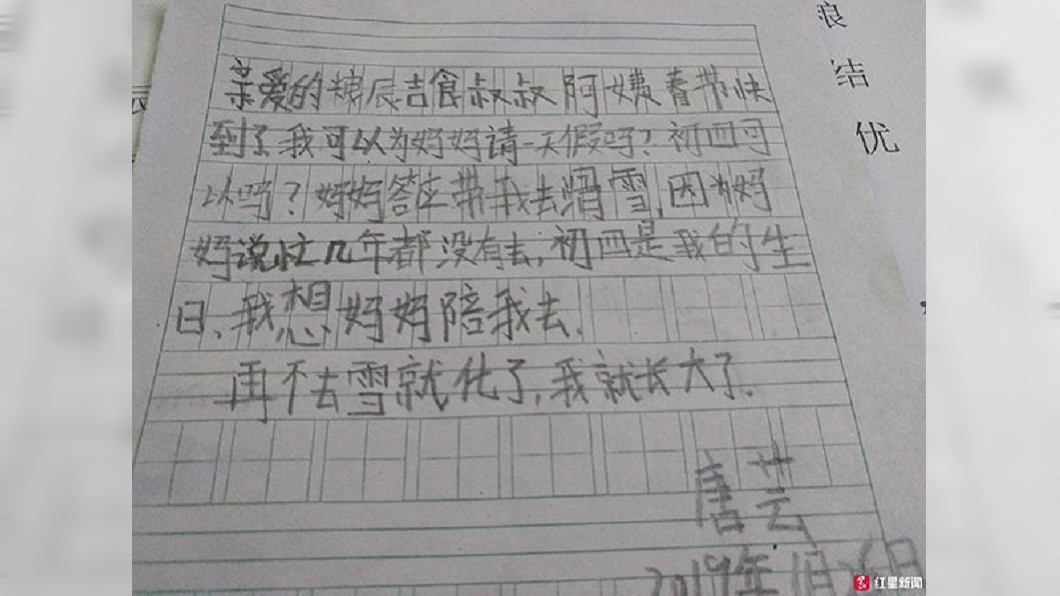 亲爱的粮辰吉食叔叔阿姨春节快
到了我可以为妈妈请一天假吗?初四可
以吗?妈妈答应带我去滑雪,因为妈
妈说忙几年都没有去,初四是我的生
日,我想妈妈陪我去.
再不去雪就化了,我就长大了.
唐芸
2019年1月26日
浪
结
优
红星新闻